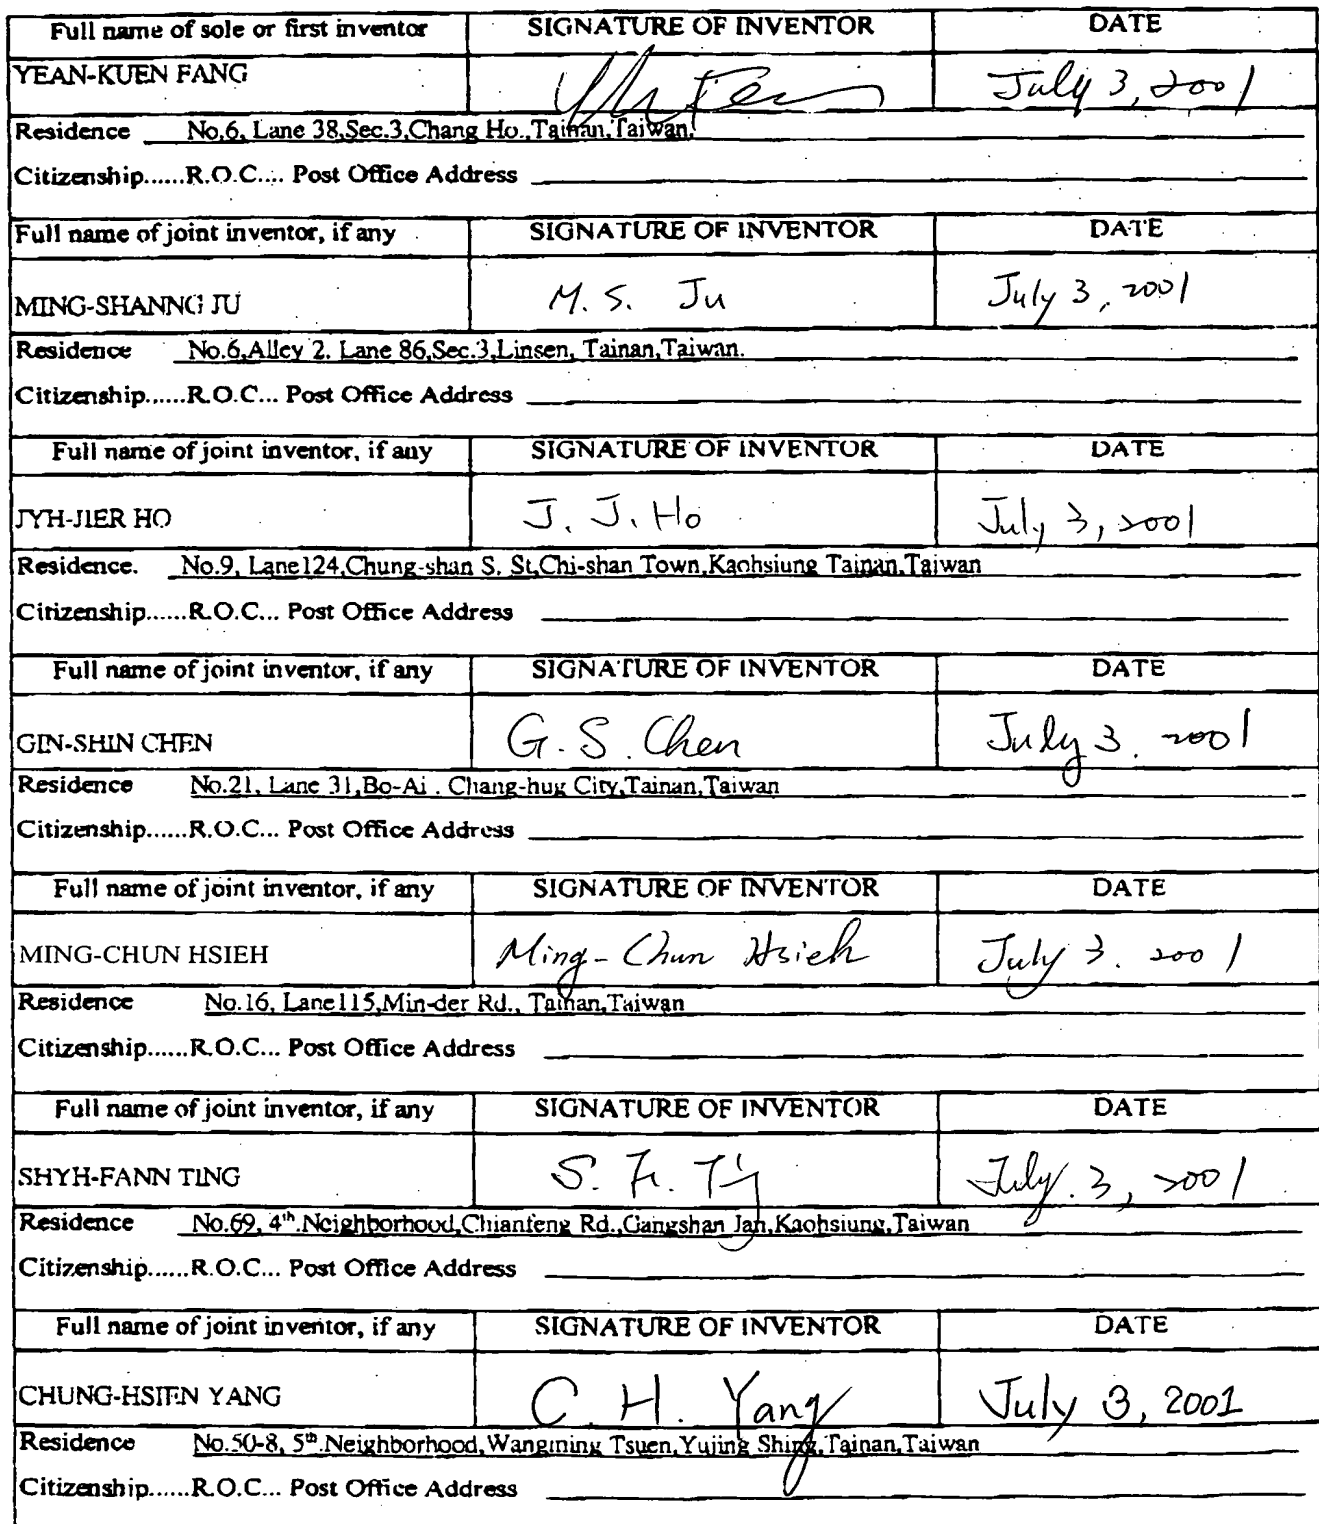 Full name of sole or first inventor SIGNATURE OF INVENTOR DATE
YEAN-KUEN FANG July 3, 2001
Residence No.6, Lane 38,Sec.3,Chang Ho.,Tainan,Taiwan.
Citizenship......R.O.C.... Post Office Address
Full name of joint inventor, if any SIGNATURE OF INVENTOR DATE
MING-SHANNG JU M. S. Ju July 3, 2001
Residence No.6,Alley 2. Lane 86,Sec.3,Linsen, Tainan,Taiwan.
Citizenship......R.O.C... Post Office Address
Full name of joint inventor, if any SIGNATURE OF INVENTOR DATE
JYH-JIER HO J. J. Ho July 3, 2001
Residence. No.9, Lane124,Chung-shan S. St,Chi-shan Town,Kaohsiung Tainan,Taiwan
Citizenship......R.O.C... Post Office Address
Full name of joint inventor, if any SIGNATURE OF INVENTOR DATE
GIN-SHIN CHEN G. S. Chen July 3. 2001
Residence No.21, Lane 31,Bo-Ai . Chang-hug City,Tainan,Taiwan
Citizenship......R.O.C... Post Office Address
Full name of joint inventor, if any SIGNATURE OF INVENTOR DATE
MING-CHUN HSIEH Ming-Chun Hsieh July 3. 2001
Residence No.16, Lane115,Min-der Rd., Tainan,Taiwan
Citizenship......R.O.C... Post Office Address
Full name of joint inventor, if any SIGNATURE OF INVENTOR DATE
SHYH-FANN TING S. F. July. 3, 2001
Residence No.69, 4th.Neighborhood,Chianfeng Rd.,Gangshan Jan,Kaohsiung,Taiwan
Citizenship......R.O.C... Post Office Address
Full name of joint inventor, if any SIGNATURE OF INVENTOR DATE
CHUNG-HSIEN YANG C. H. Yang July 3, 2001
Residence No.50-8, 5th.Neighborhood,Wangming Tsuen,Yujing Shing,Tainan,Taiwan
Citizenship......R.O.C... Post Office Address